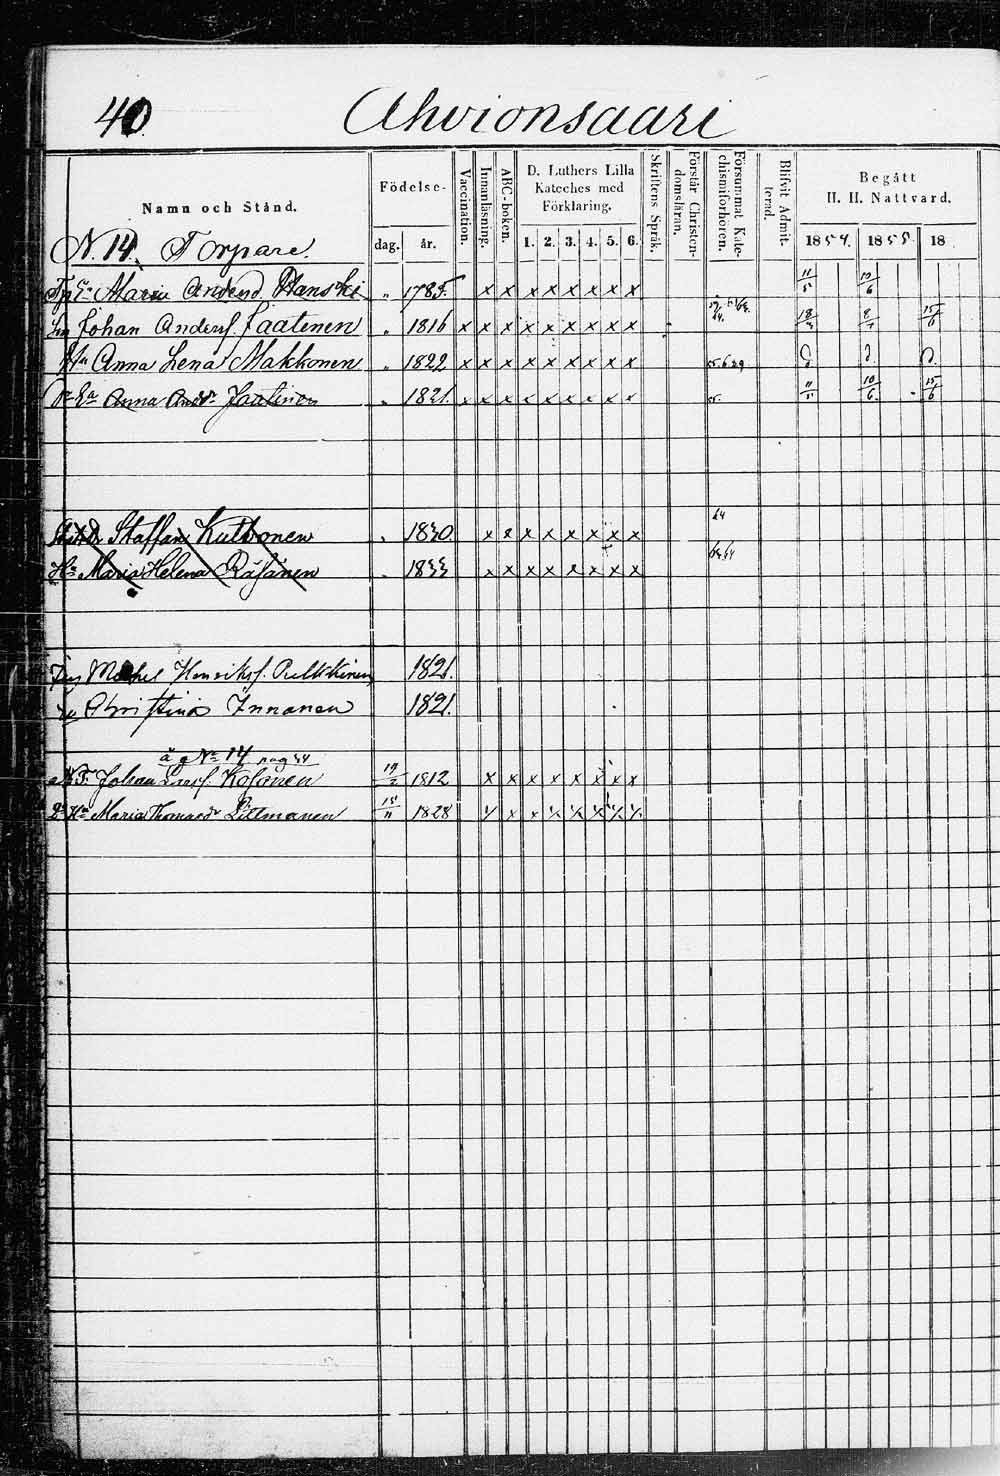 40 Ahvionsaari
Namn och Stånd.
Födelse-
dag. år.
Vaccination.
Innanläsning.
ABC-boken.
D. Luthers Lilla
Kateches med
Förklaring.
1. 2. 3. 4. 5. 6.
Skriftens Språk.
Förstår Christen-
domsläran.
Försummat Kate-
chismiförhören.
Blifvit Admit-
terad.
Begått
H. H. Nattvard.
1857. 1858 18
N. 14. Torpare.
Maria Hanski 1785. x x x x x x x x 11/5 10/6
Johan Andersf. Jaatinen 1816 x x x x x x x x x 18/3 8/7 15/6
Anna Lena Makkonen 1822 x x x x x x x x x
Anna Jaatinen 1821. x x x x x x x x x 11/5 10/6 15/6
Staffan Kuttvonen 1830 x x x x x x x x 64
Maria Helena Räsänen 1833 x x x x x x x x
Henriksf. Pulkkinen 1821.
Christina Innanen 1821.
å g No 14 pag 44
Johan Kosonen 1812 x x x x x x x x
Maria 1828